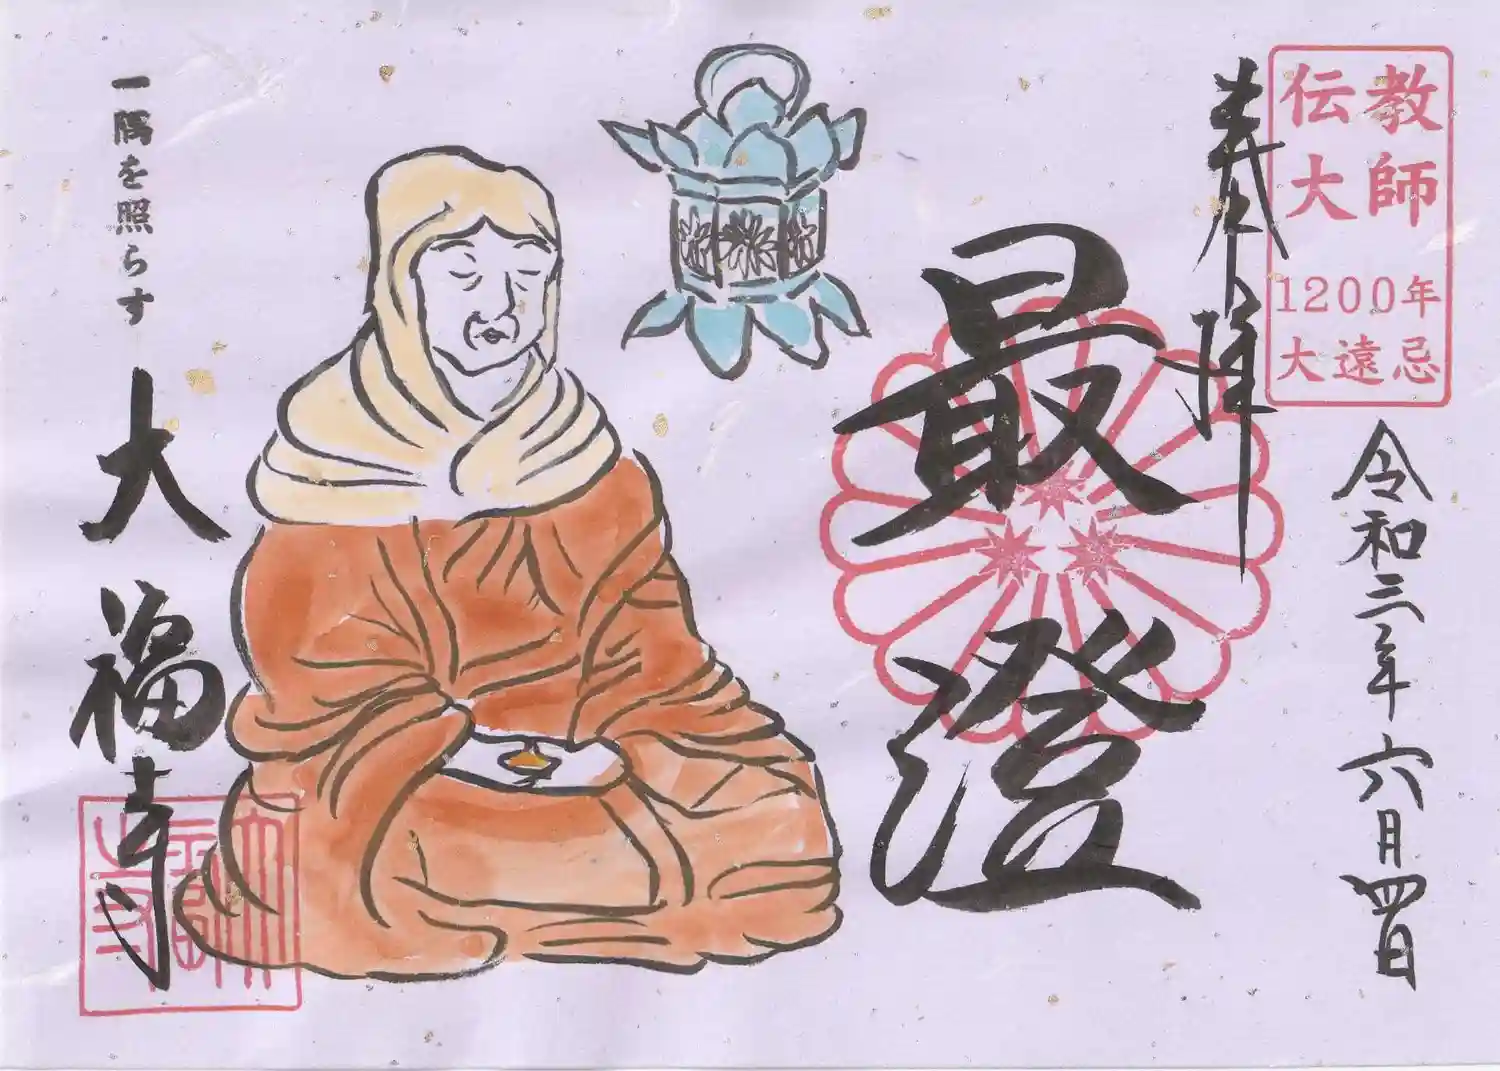 伝教
大師
1200年
大遠忌
奉拝
令和三年六月四日
最澄
一隅を照らす
大福寺